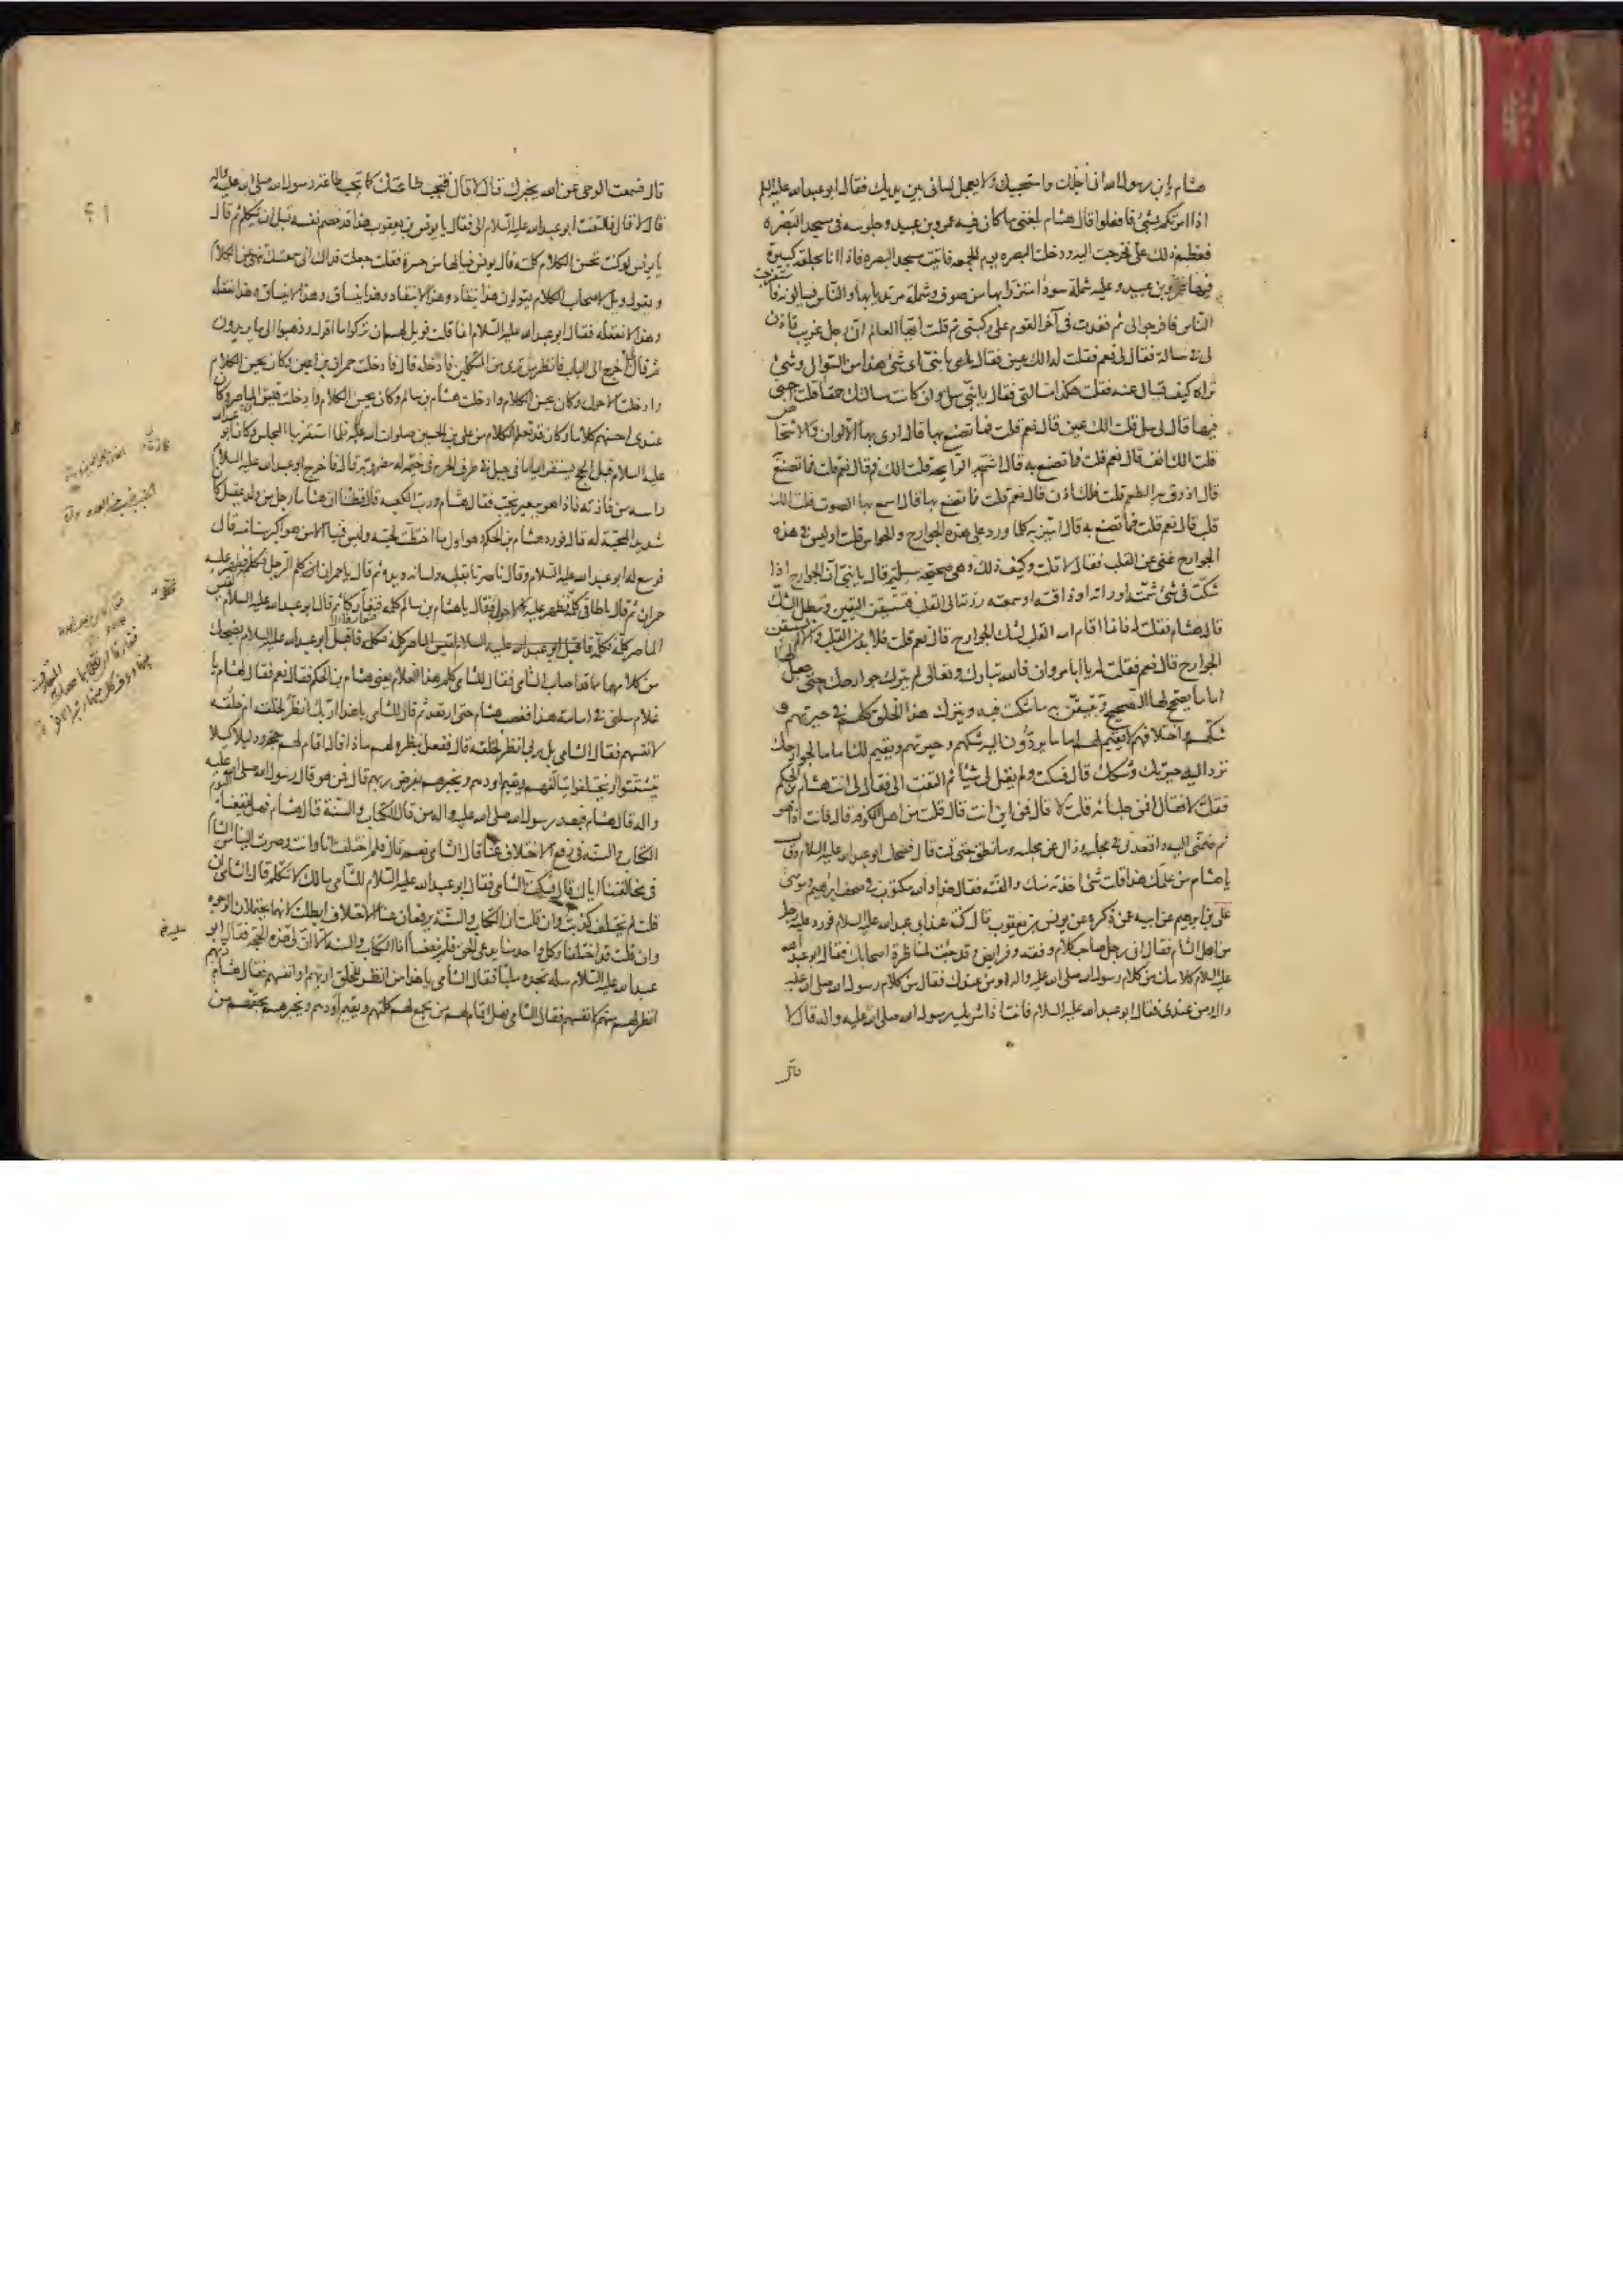 هشام يا بن رسول الله انى اجلك واستحييك ولا يعمل لسانى بين يديك فقال ابو عبد الله عليه السلم
اذا امرتكم بشئ فافعلوا قال هشام بلغنى ما كان فيه عمرو بن عبيد وجلوسه فى مسجد البصره
فعظم ذلك على فخرجت اليه ودخلت البصره يوم الجمعه فاتيت مسجد البصره فاذا انا بحلقه كبيرة
فيها عمرو بن عبيد وعليه شملة سودا متزرا بها من صوف وشملة مرتديا بها والناس يسالونه فاستفرجت
الناس فافرجوا لى ثم قعدت فى آخر القوم على ركبتى ثم قلت ايها العالم انى رجل غريب تاذن
لى فى مسالة فقال لى نعم فقلت له الك عين فقال لى يا بنى اى شئ هذا من السوال وشئ
تراه كيف تسال عنه فقلت هكذا مسالتى فقال يا بنى سل وان كانت مسالتك حمقا قلت اجبنى
فيها قال لى سل قلت الك عين قال نعم قلت فما تصنع بها قال ارى بها الالوان والاشخاص
قلت الك انف قال نعم قلت فما تصنع به قال اشتم به الرايحة قلت الك فم قال نعم قلت فما تصنع به
قال اذوق به الطعم قلت فلك اذن قال نعم قلت فما تصنع بها قال اسمع بها الصوت قلت الك
قلب قال نعم قلت فما تصنع به قال اميز به كلما ورد على هذه الجوارح والحواس قلت اوليس فى هذه
الجوارح غنى عن القلب فقال لا قلت وكيف ذلك وهى صحيحة سليمة قال يا بنى ان الجوارح اذا
شكت فى شئ شمته او راته او ذاقته او سمعته ردته الى القلب فتستيقن اليقين وتبطل الشك
قال هشام فقلت له فانما اقام الله القلب لشك الجوارح قال نعم قلت فلا بد من القلب والا لم تستيقن
الجوارح قال نعم فقلت له يا ابا مروان فالله تبارك وتعالى لم يترك جوارحك حتى جعل لها
اماما يصحح لها الصحيح وتيقن به ما شكت فيه ويترك هذا الخلق كلهم فى حيرتهم و
شكهم واختلافهم لا يقيم لهم اماما يردون اليه شكهم وحيرتهم ويقيم لك اماما لجوارحك
ترد اليه حيرتك وشكك قال فسكت ولم يقل لى شيئا ثم التفت الى فقال لى انت هشام بن الحكم
فقلت لا فقال افمن جلسائه قلت لا قال فمن اين انت قال قلت من اهل الكوفه قال فانت اذا هو
ثم ضمنى اليه واقعدنى فى مجلسه وزال عن مجلسه وما نطق حتى قمت قال فضحك ابو عبد الله عليه السلام وقال
يا هشام من علمك هذا قلت شئ اخذته منك والفته فقال هذا والله مكتوب فى صحف ابرهيم وموسى
على بن ابرهيم عن ابيه عمن ذكره عن يونس بن يعقوب قال كنت عند ابى عبد الله عليه السلام فورد عليه رجل
من اهل الشام فقال انى رجل صاحب كلام وفقه وفرايض وقد جئت لمناظرة اصحابك فقال ابو عبد الله
عليه السلام كلامك من كلام رسول الله صلى الله عليه واله او من عندك فقال من كلام رسول الله صلى الله عليه
واله ومن عندى فقال ابو عبد الله عليه السلام فانت اذا شريك رسول الله صلى الله عليه واله قال لا
قال
قال فسمعت الوحى عن الله يخبرك قال لا قال فتجب طاعتك كما تجب طاعة رسول الله صلى الله عليه واله
قال لا قال فالتفت ابو عبد الله عليه السلام الى فقال يا يونس بن يعقوب هذا قد خصم نفسه قبل ان يتكلم ثم قال
يا يونس لو كنت تحسن الكلام كلمته قال يونس فيا لها من حسرة فقلت جعلت فداك انى سمعتك تنهى عن الكلام
و يقول ويل لاصحاب الكلام يقولون هذا ينقاد وهذا لا ينقاد وهذا ينساق وهذا لا ينساق وهذا نعقله
وهذا لا نعقله فقال ابو عبد الله عليه السلام انما قلت فويل لهم ان تركوا ما اقول وذهبوا الى ما يريدون
ثم قال اخرج الى الباب فانظر من ترى من المتكلمين فادخله قال فادخلت حمران بن اعين وكان يحسن الكلام
وادخلت الاحول وكان يحسن الكلام وادخلت هشام بن سالم وكان يحسن الكلام وادخلت قيس الماصر وكان
عندى احسنهم كلاما وكان قد تعلم الكلام من على بن الحسين صلوات الله عليه فلما استقر بنا المجلس وكان ابو عبد الله
عليه السلام قبل الحج يستقر اياما فى جبل فى طرف الحرم فى خيمة له مضروبة قال فاخرج ابو عبد الله عليه السلام
راسه من فازته فاذا هو ببعير يخب فقال هشام ورب الكعبه قال فظننا ان هشاما رجل من ولد عقيل كان
شديد المحبة له قال فورد هشام بن الحكم وهو اول ما اختطت لحيته وليس فينا الا من هو اكبر سنا منه قال
فوسع له ابو عبد الله عليه السلام وقال ناصرنا بقلبه ولسانه ويده ثم قال يا حمران كلم الرجل فكلمه فظهر عليه
حمران ثم قال يا طاقى كلمه فكلمه فظهر عليه الاحول ثم قال يا هشام بن سالم كلمه فتعارفا ثم قال ابو عبد الله عليه السلام لقيس
الماصر كلمه فكلمه فاقبل ابو عبد الله عليه السلام يضحك
من كلامهما مما قد اصاب الشامى فقال للشامى كلم هذا الغلام يعنى هشام بن الحكم فقال نعم فقال لهشام يا
غلام سلنى فى امامة هذا فغضب هشام حتى ارتعد ثم قال للشامى يا هذا اربك انظر لخلقه ام خلقه
لانفسهم فقال الشامى بل ربى انظر لخلقه قال ففعل بنظره لهم ماذا قال اقام لهم حجة ودليلا كيلا
يتشتتوا او يختلفوا يتالفهم ويقيم اودهم ويخبرهم بفرض ربهم قال فمن هو قال رسول الله صلى الله عليه
واله قال هشام فبعد رسول الله صلى الله عليه واله من قال الكتاب والسنة قال هشام فهل ينفعنا اليوم
الكتاب والسنه فى رفع الاختلاف عنا قال الشامى نعم قال فلم اختلفت انا وانت وصرت الينا من الشام
فى مخالفتنا اياك قال فسكت الشامى فقال ابو عبد الله عليه السلام للشامى ما لك لا تتكلم قال الشامى ان
قلت لم نختلف كذبت وان قلت ان الكتاب والسنة يرفعان عنا الاختلاف ابطلت لانهما يحتملان الوجوه
وان قلت قد اختلفنا وكل واحد منا يدعى الحق فلم ينفعنا اذا الكتاب والسنه الا ان لى هذه الحجه فقال ابو
عبد الله عليه السلام سله تجده مليا فقال الشامى يا هذا من انظر للخلق اربهم او انفسهم فقال هشام ربهم
انظر لهم منهم لانفسهم فقال الشامى فهل اقام لهم من يجمع لهم كلمتهم ويقيم اودهم ويخبرهم بحقهم من